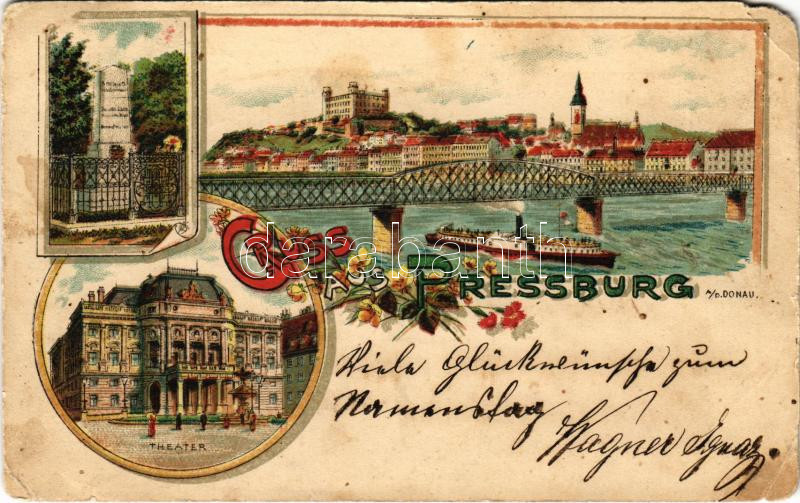 Gruss
aus
Pressburg
a/D. DONAU.
THEATER
Viele Glückwünsche zum
Namenstag
Wagner Ignaz.
darabanth